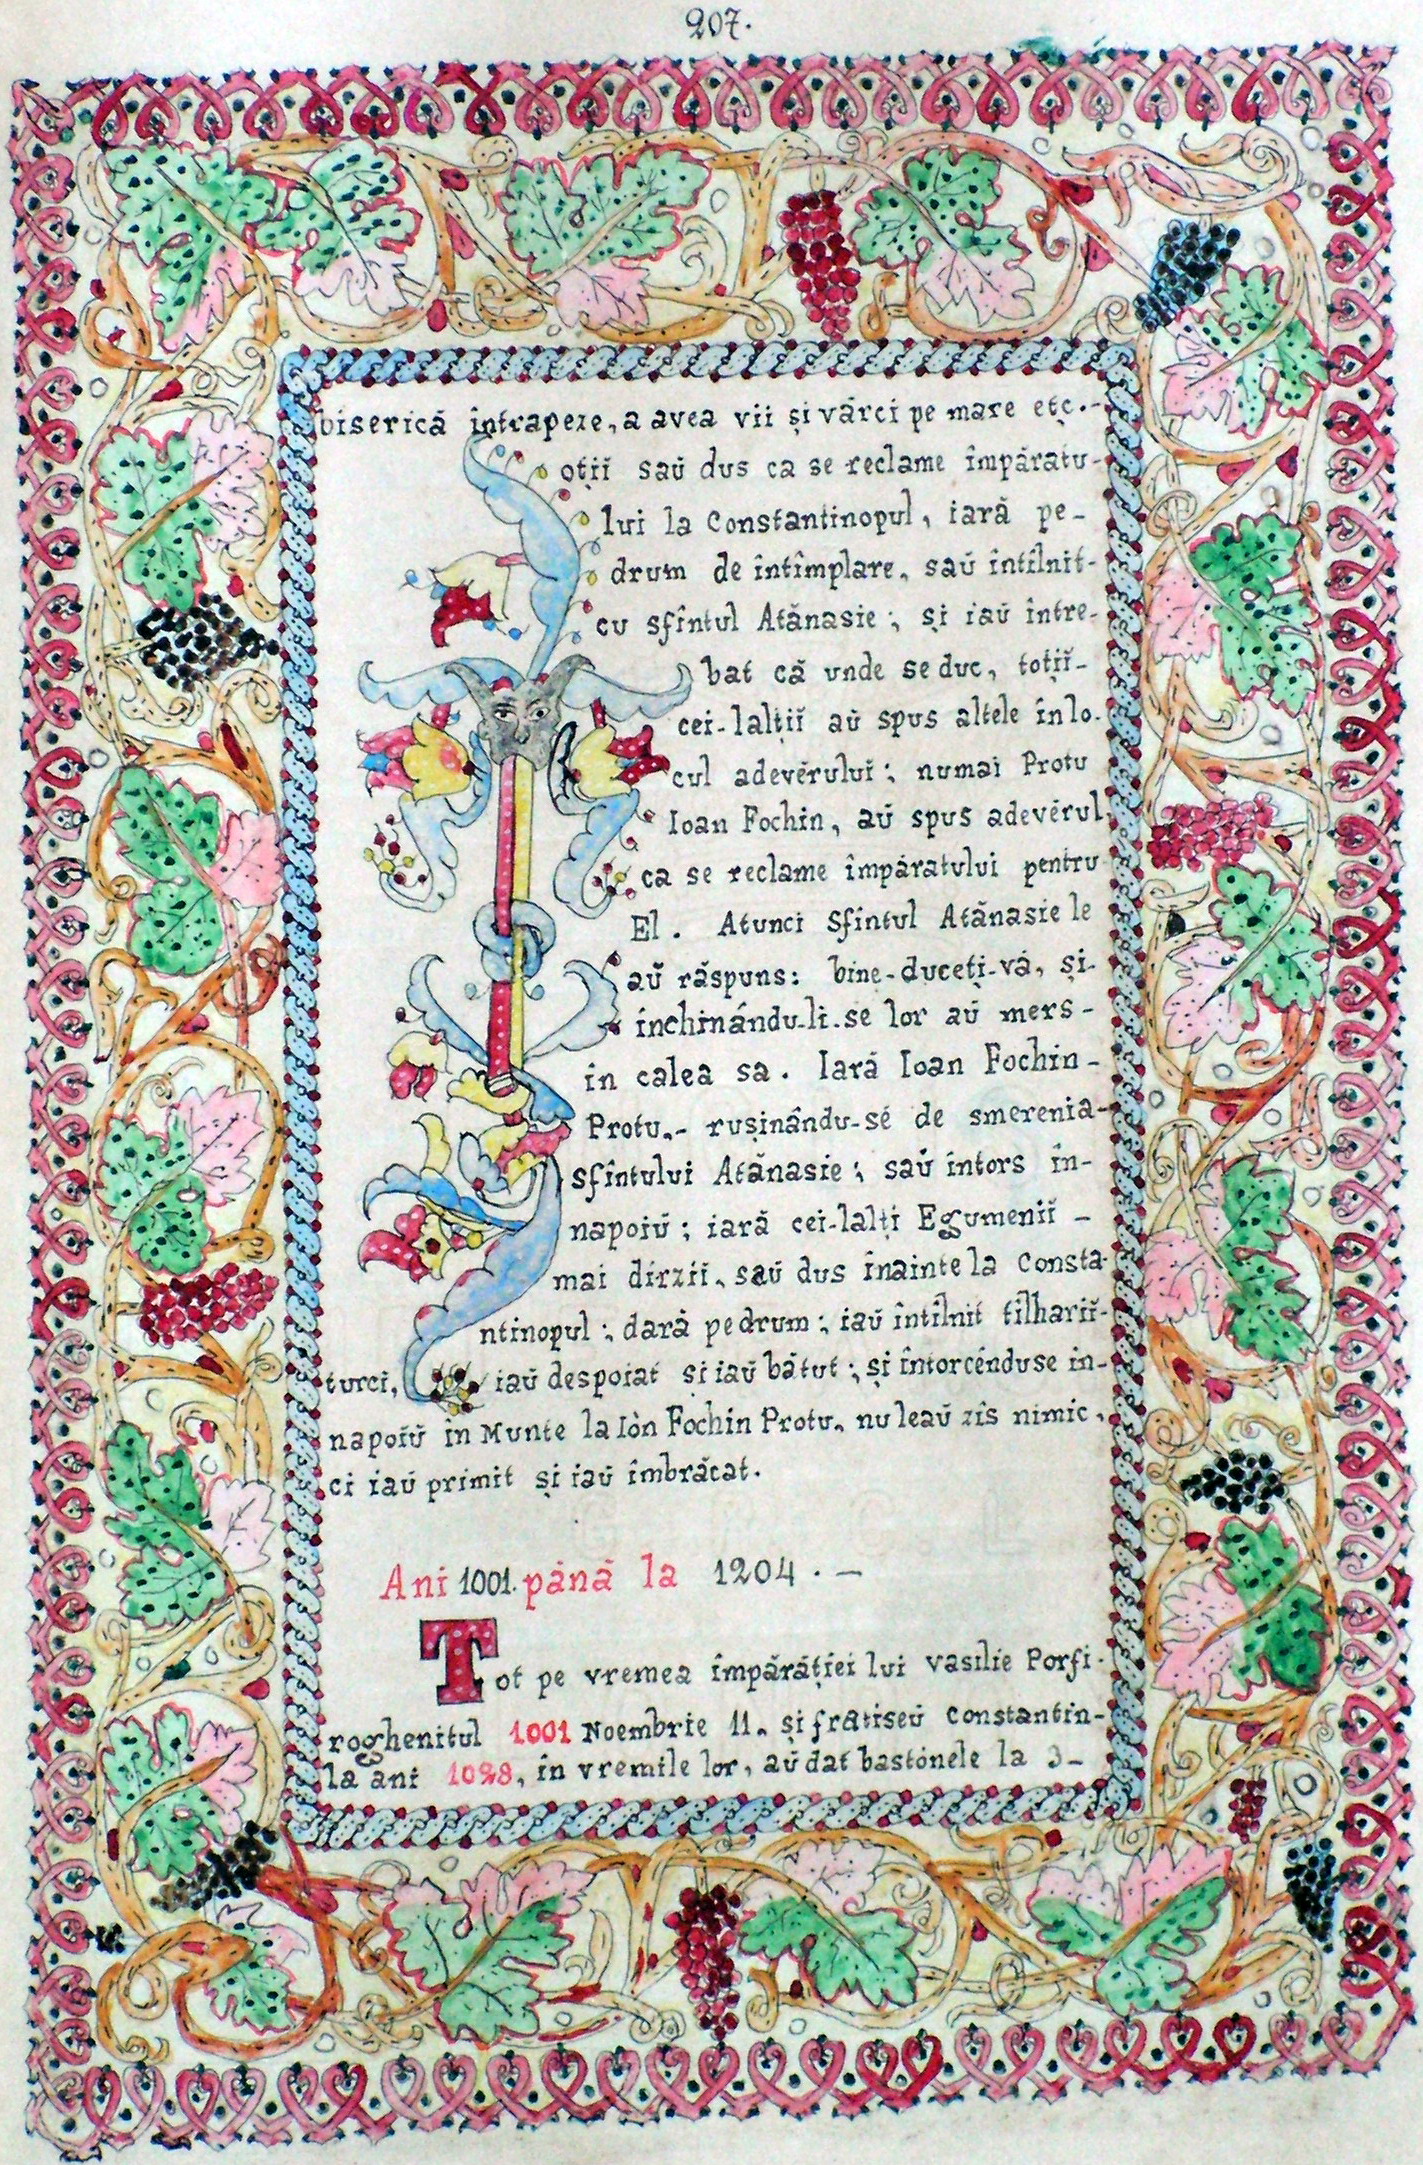 207.
biserică întrapeze, a avea vii și vărci pe mare etc.-
oții saŭ dus ca se reclame împăratu-
lui la Constantinopul, iară pe-
drum de întîmplare, saŭ întîlnit-
cu sfîntul Atănasie ; și iaŭ între-
bat că unde se duc, toțiĭ-
cei-lalțiĭ aŭ spus altele în lo-
cul adevĕrului ; numai Protu
Ioan Fochin, aŭ spus adevĕrul,
ca se reclame împăratului pentru
El . Atunci Sfîntul Atănasie le
aŭ răspuns: bine-duceți-vă, și-
închinându-li-se lor aŭ mers-
în calea sa . Iară Ioan Fochin-
Protu,- rușinându-sé de smerenia-
sfîntului Atănasie ; saŭ întors în-
napoiŭ ; iară cei-lalți Egumeniĭ -
mai dîrziĭ, saŭ dus înainte la Consta-
ntinopul ; dară pe drum ; iaŭ întîlnit tîlhariĭ-
turci, iaŭ despoiat și iaŭ bătut ; și întorcénduse în-
napoiŭ în Munte la Iòn Fochin Protu, nu leaŭ zîs nimic,
ci iaŭ primit și iaŭ îmbrăcat.
Ani 1001. până la 1204 . —
Tot pe vremea împărăției lui vasilie Porfi-
roghenitul 1001 Noembrie 11, și fratiseŭ Constantin-
la ani 1028, în vremile lor, aŭ dat bastónele la 3-